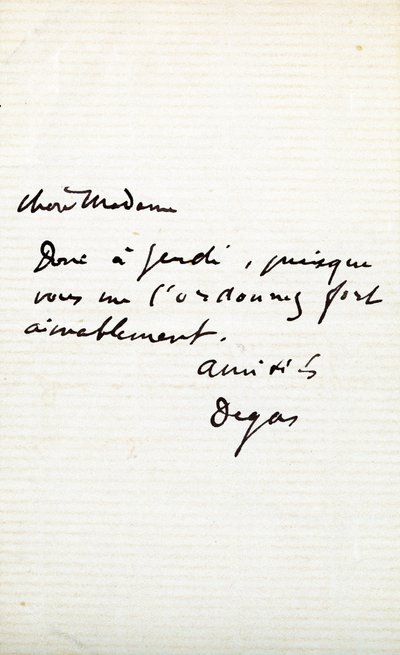 Chère Madame
Donc à jeudi, puisque
vous me l'ordonnez fort
aimablement.
amitiés
Degas